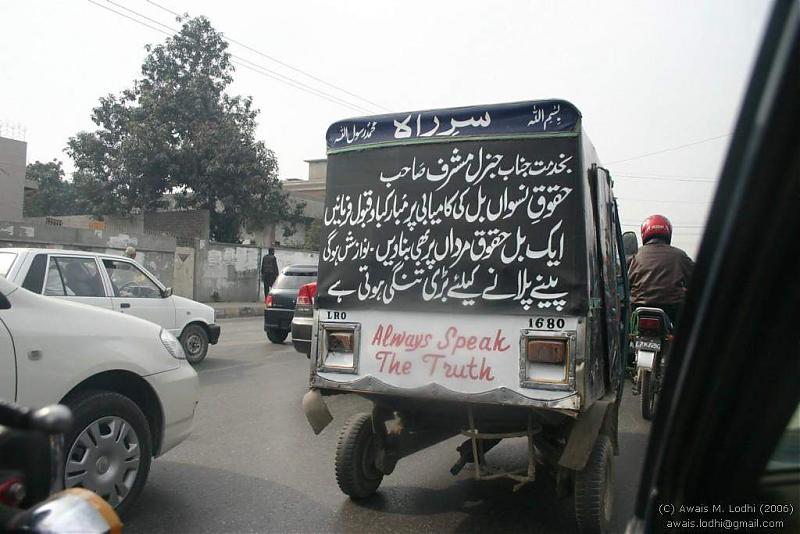 بِسْمِ اللہ سرِراہ محمدرسول اللہ
بخدمت جناب جنرل مشرف صاحب
حقوقِ نسواں بل کی کامیابی پر مبارکباد قبول فرمائیں
ایک بل حقوق مرداں پر بھی بنا دیں - نوازش ہوگی
پینے پلانے کیلئے بڑی تنگی ہوتی ہے
LRO 1680
Always Speak
The Truth
(C) Awais M. Lodhi (2006)
awais.lodhi@gmail.com